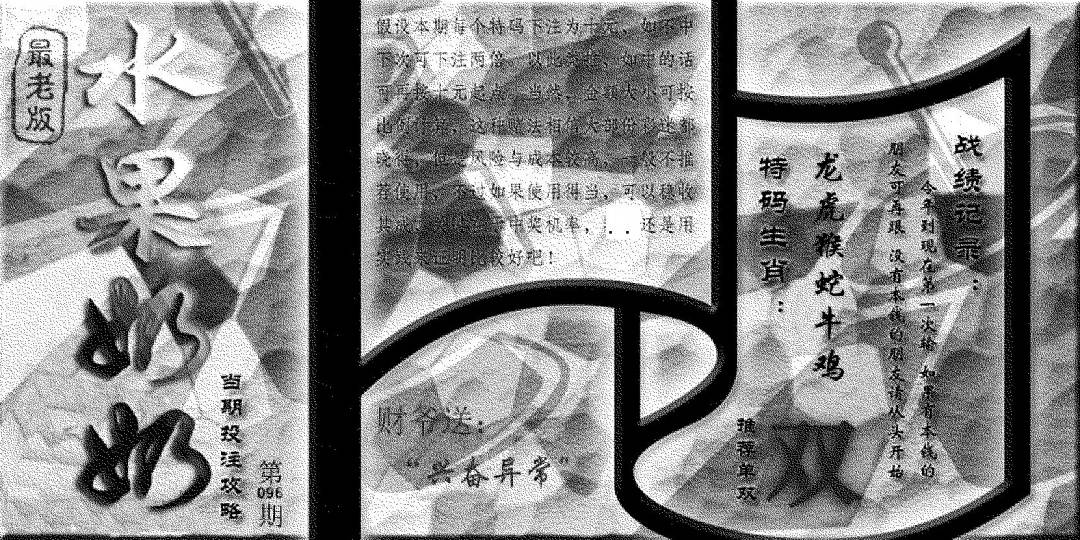 最老版
水果奶奶
当期投注攻略
第
096
期
假设本期每个特码下注为十元，如不中
下次可下注两倍，以此类推，如中的话
可再按十元起点，当然，金额大小可按
比例计算，这种赌法相信大部份彩迷都
晓得，但是风险与成本较高，一般不推
荐使用，不过如果使用得当，可以稳收
其成
中奖机率，！..还是用
比较好吧！
财爷送：
“兴奋异常”
战绩记录：
今年到现在第一次输 如果有本钱的
朋友可再跟 没有本钱的朋友请从头开始
龙虎猴蛇牛鸡
特码生肖：
双
推荐单双